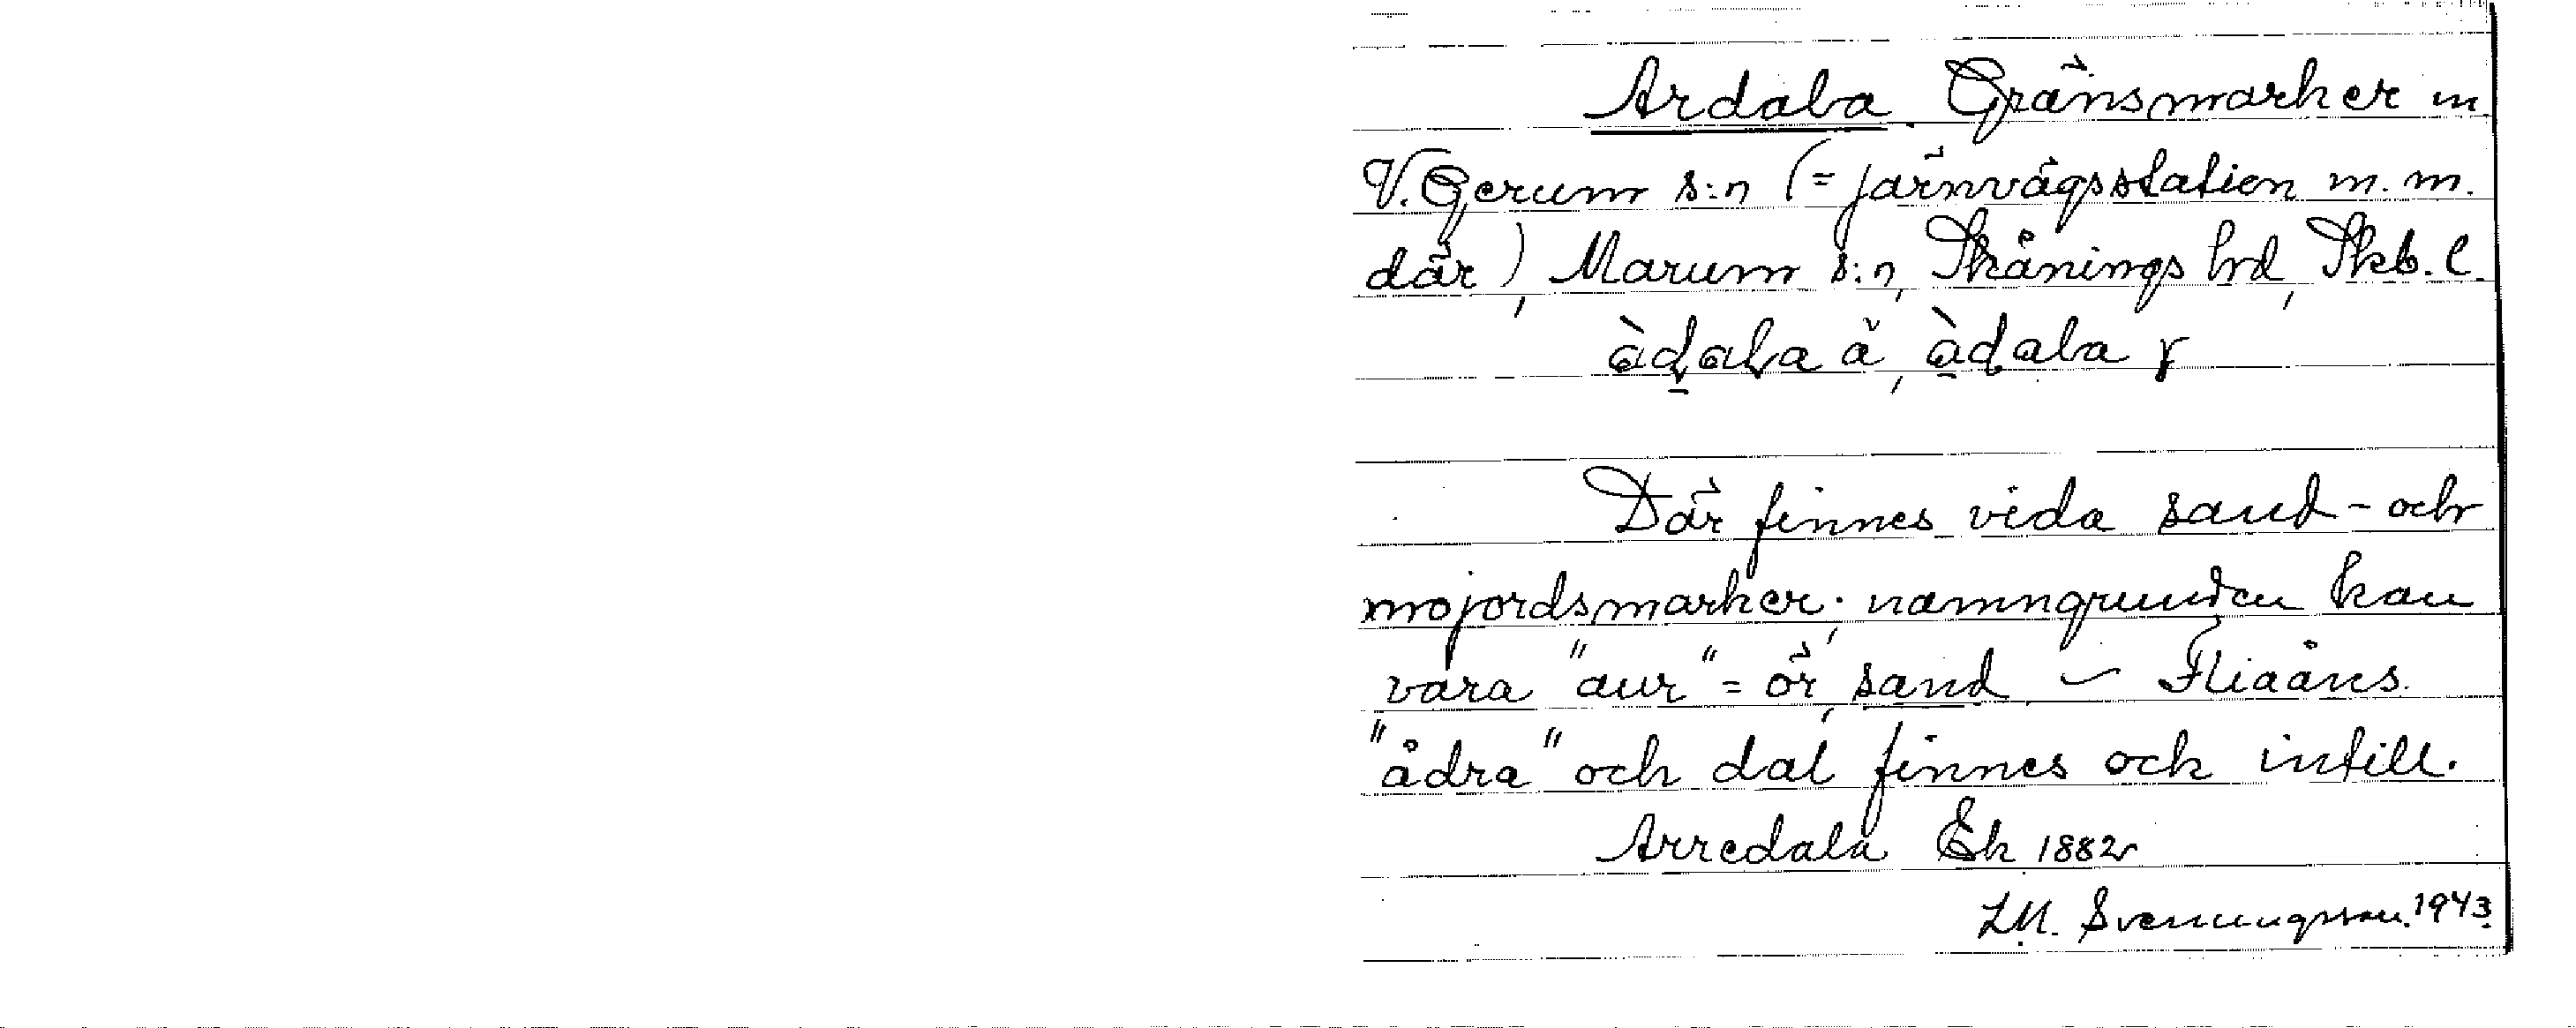 Ardala. Gränsmarker m
V. Gerum s:n (= järnvägsstation m.m.
där), Marum s:n, Skånings hrd, Skb. l.
àḍala ä, àḍala y
Där finnes vida sand- och
mojordsmarker; namngrunden kan
vara "aur" = ör, sand – Fliaåns
"ådra" och dal finnes ock intill.
Arredala Ek 1882
L.M. Svenungsson. 1943.